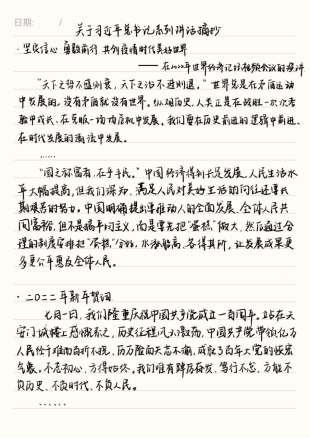 日期: /
关于习近平总书记系列讲话摘抄
· 坚定信心 勇毅前行 共创后疫情时代美好世界
—— 在2022年世界经济论坛视频会议的演讲
“天下之势不盛则衰,天下之治不进则退。”世界总是在矛盾运动
中发展的,没有矛盾就没有世界。纵观历史,人类正是在战胜一次次考
验中成长、在克服一场场危机中发展。我们要在历史前进的逻辑中前进、
在时代发展的潮流中发展。
……
“国之称富者,在乎丰民。”中国经济得到长足发展,人民生活水
平大幅提高,但我们深知,满足人民对美好生活的向往还要长
期艰苦的努力。中国明确提出要推动人的全面发展、全体人民共
同富裕,但不是搞平均主义,而是要先把“蛋糕”做大,然后通过合
理的制度安排把“蛋糕”分好,水涨船高、各得其所,让发展成果更
多更公平惠及全体人民。
· 二〇二二年新年贺词
七月一日,我们隆重庆祝中国共产党成立一百周年。站在天
安门城楼上感慨系之,历史征程风云激荡,中国共产党带领亿万
人民经千难而百折不挠、历万险而矢志不渝,成就了百年大党的恢宏
气象。不忘初心,方得始终。我们唯有踔厉奋发、笃行不怠,方能不
负历史、不负时代、不负人民。
……